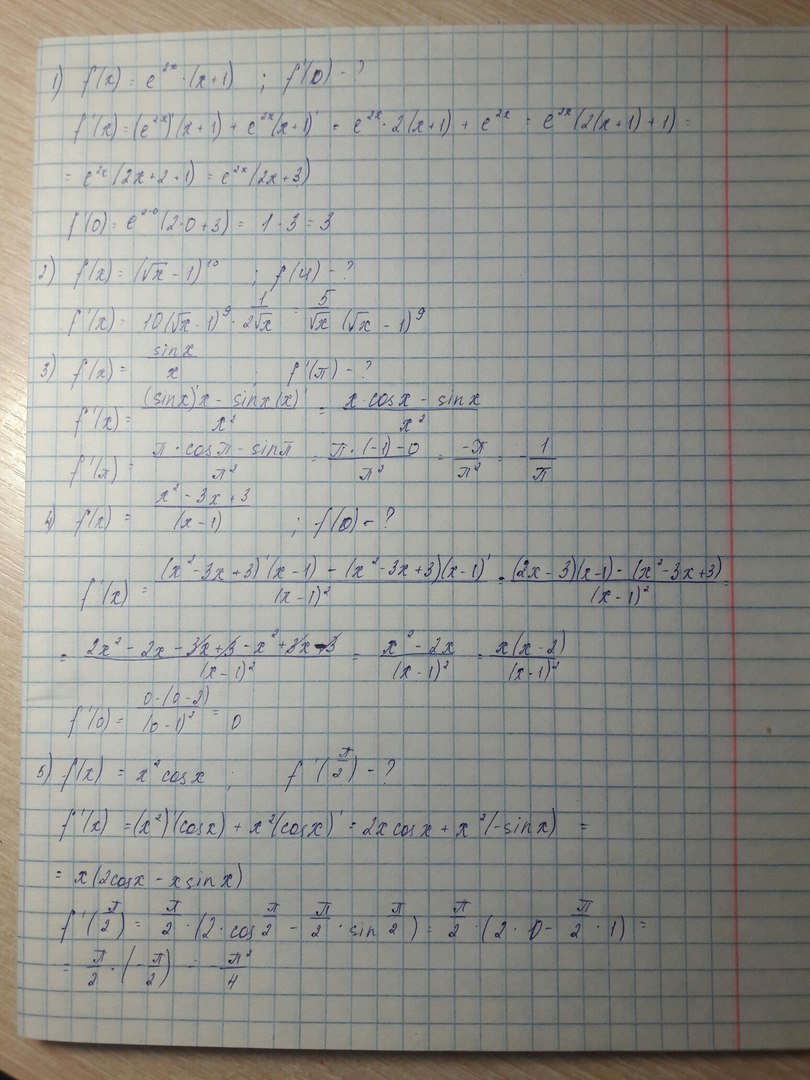 1) f(x) = e^{2x} · (x+1) ; f'(0) - ?
f'(x) = (e^{2x})'(x+1) + e^{2x}(x+1)' = e^{2x} · 2(x+1) + e^{2x} = e^{2x}(2(x+1)+1) =
= e^{2x}(2x+2+1) = e^{2x}(2x+3)
f'(0) = e^{2·0}(2·0+3) = 1·3 = 3
2) f(x) = (√x - 1)^{10} ; f'(4) - ?
f'(x) = 10(√x - 1)^9 · \frac{1}{2√x} = \frac{5}{√x} (√x - 1)^9
3) f(x) = \frac{sinx}{x} ; f'(π) - ?
f'(x) = \frac{(sinx)'x - sinx(x)'}{x^2} = \frac{x·cosx - sinx}{x^2}
f'(π) = \frac{π·cosπ - sinπ}{π^2} = \frac{π·(-1)-0}{π^2} = \frac{-π}{π^2} = -\frac{1}{π}
4) f(x) = \frac{x^2-3x+3}{(x-1)} ; f'(0) - ?
f'(x) = \frac{(x^2-3x+3)'(x-1) - (x^2-3x+3)(x-1)'}{(x-1)^2} = \frac{(2x-3)(x-1) - (x^2-3x+3)}{(x-1)^2} =
= \frac{2x^2-2x-3x+3-x^2+3x-3}{(x-1)^2} = \frac{x^2-2x}{(x-1)^2} = \frac{x(x-2)}{(x-1)^2}
f'(0) = \frac{0·(0-2)}{(0-1)^2} = 0
5) f(x) = x^2 cosx ; f'(\frac{π}{2}) - ?
f'(x) = (x^2)'(cosx) + x^2(cosx)' = 2x cosx + x^2(-sinx) =
= x(2cosx - x sinx)
f'(\frac{π}{2}) = \frac{π}{2}·(2·cos\frac{π}{2} - \frac{π}{2}·sin\frac{π}{2}) = \frac{π}{2}·(2·0 - \frac{π}{2}·1) =
= \frac{π}{2}·(-\frac{π}{2}) = -\frac{π^2}{4}